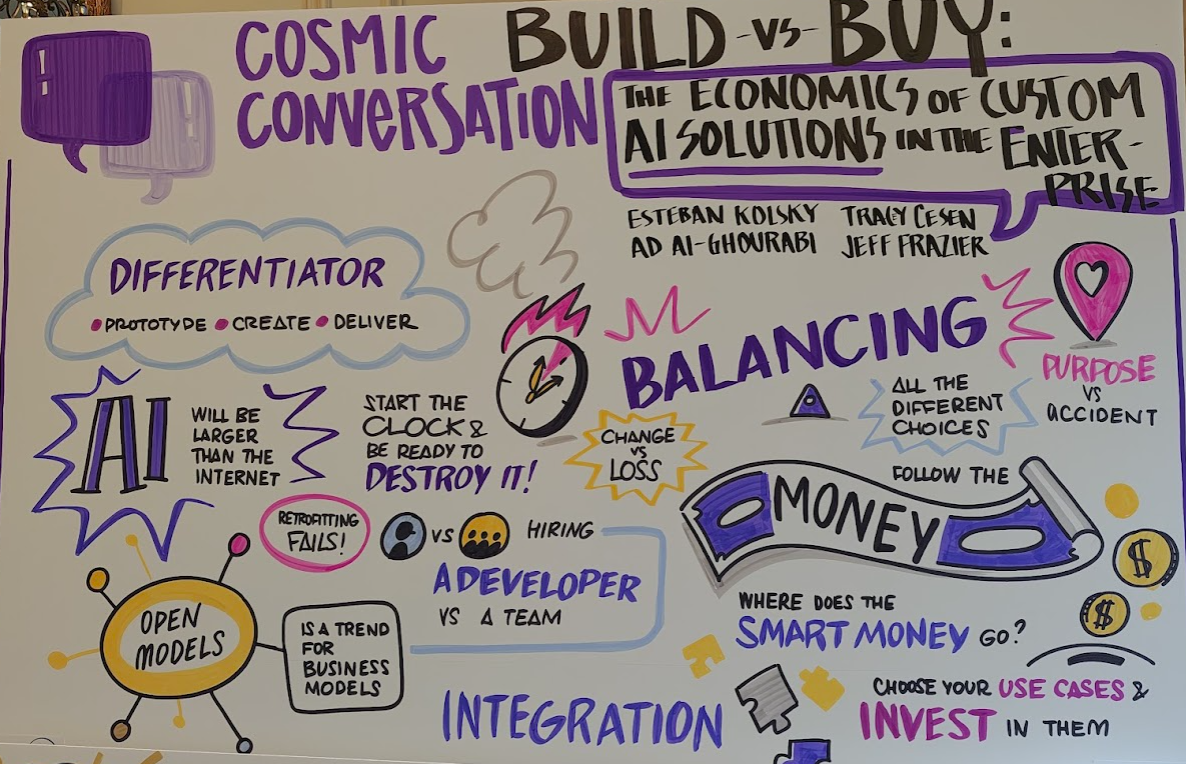 COSMIC
CONVERSATION
BUILD -VS- BUY:
THE ECONOMICS OF CUSTOM
AI SOLUTIONS IN THE ENTER-
PRISE
ESTEBAN KOLSKY TRACY CESEN
AD AI-GHOURABI JEFF FRAZIER
DIFFERENTIATOR
• PROTOTYPE • CREATE • DELIVER
AI
WILL BE
LARGER
THAN THE
INTERNET
START THE
CLOCK &
BE READY TO
DESTROY IT!
BALANCING
ALL THE
DIFFERENT
CHOICES
PURPOSE
VS
ACCIDENT
CHANGE
VS
LOSS
FOLLOW THE
MONEY
$
$
WHERE DOES THE
SMART MONEY GO?
CHOOSE YOUR USE CASES &
INVEST IN THEM
RETROFITTING
FAILS!
VS
HIRING
A DEVELOPER
VS A TEAM
OPEN
MODELS
IS A TREND
FOR
BUSINESS
MODELS
INTEGRATION